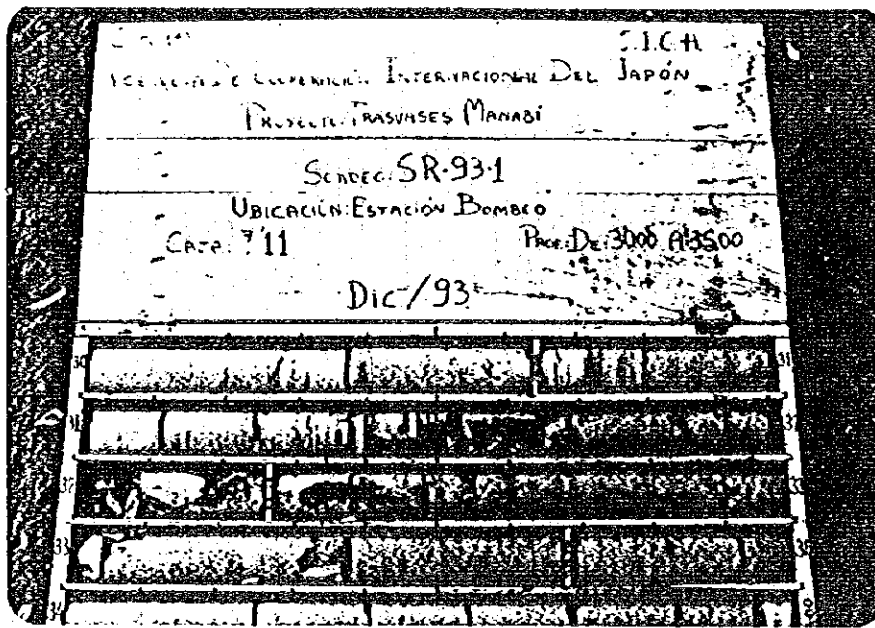 J.I.C.A
INTERNACIONAL DEL JAPÓN
PROYECTO: TRASVASES MANABÍ
SONDEO: SR-93-1
UBICACIÓN: ESTACIÓN BOMBEO
CAJA: 11 PROF: DE: 30.00 A: 35.00
DIC/93
30 31
31 32
32 33
33
34